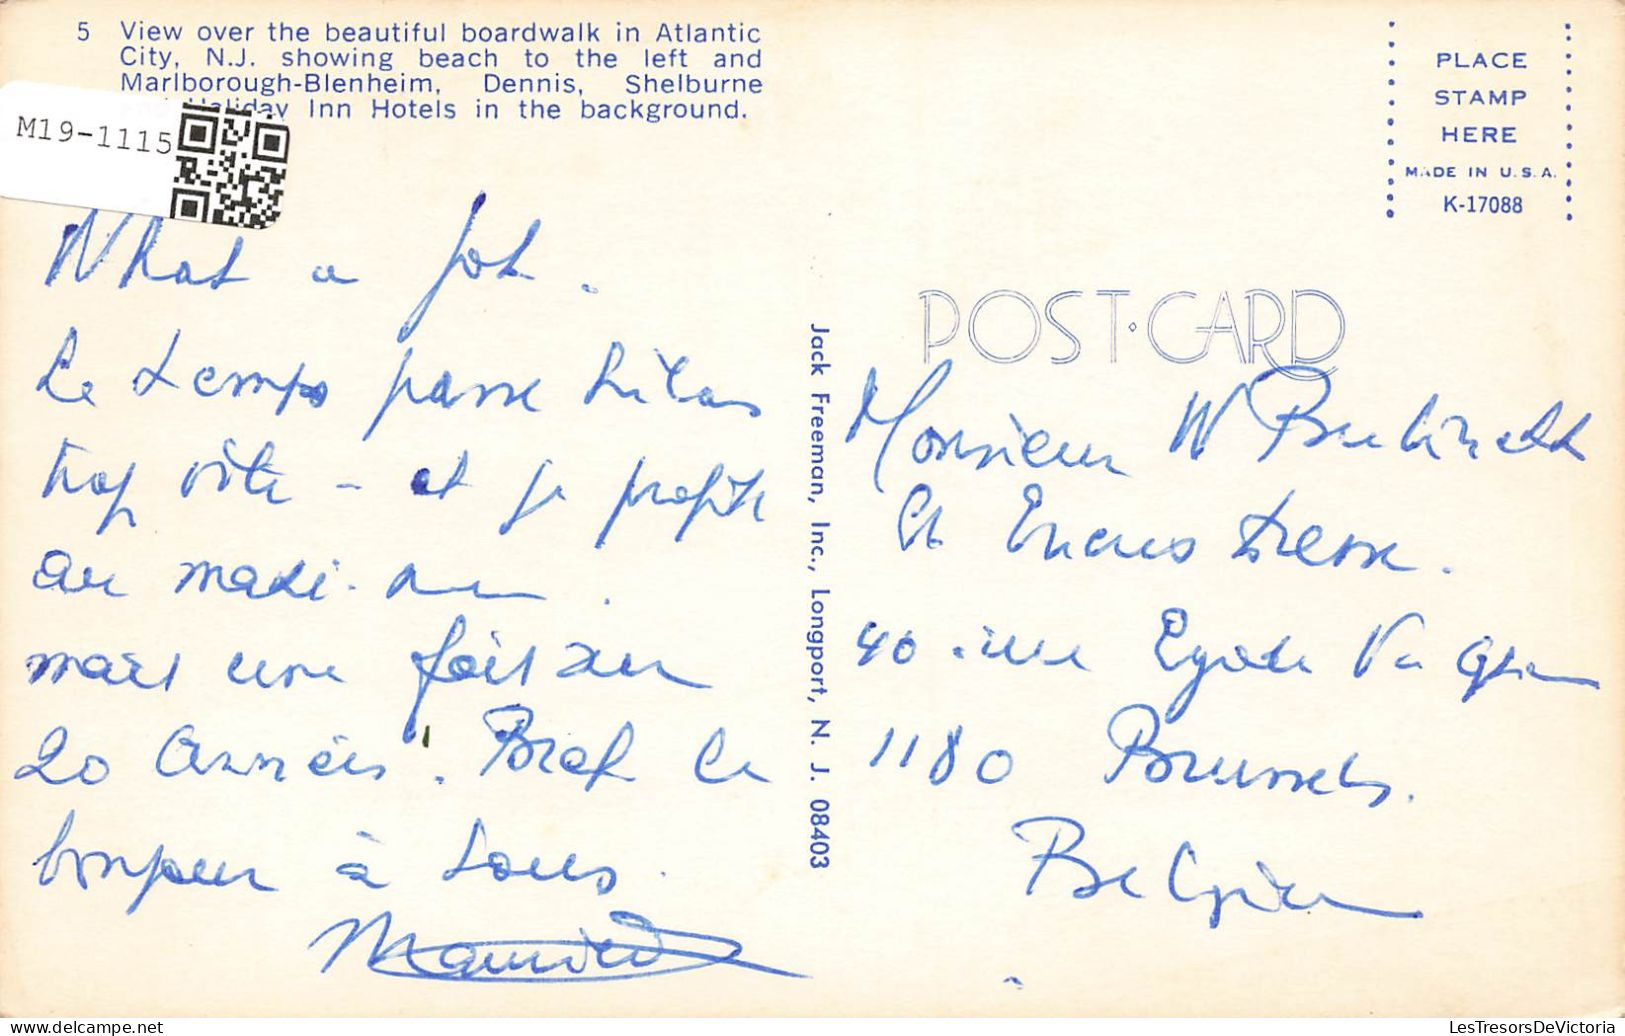 5 View over the beautiful boardwalk in Atlantic
City, N.J. showing beach to the left and
Marlborough-Blenheim, Dennis, Shelburne
and Holiday Inn Hotels in the background.
M19-1115
PLACE
STAMP
HERE
MADE IN U.S.A.
K-17088
What a
Le temps passe hélas
trop vite - et je profite
au maxi-mum.
mais une fois
20 Années! Bref le
bonjour à tous.
Jack Freeman, Inc., Longport, N. J. 08403
POST·CARD
Monsieur W
40 rue Egide Van
1180 Brussels.
Belgium
LesTresorsDeVictoria.com
https://www.delcampe.net